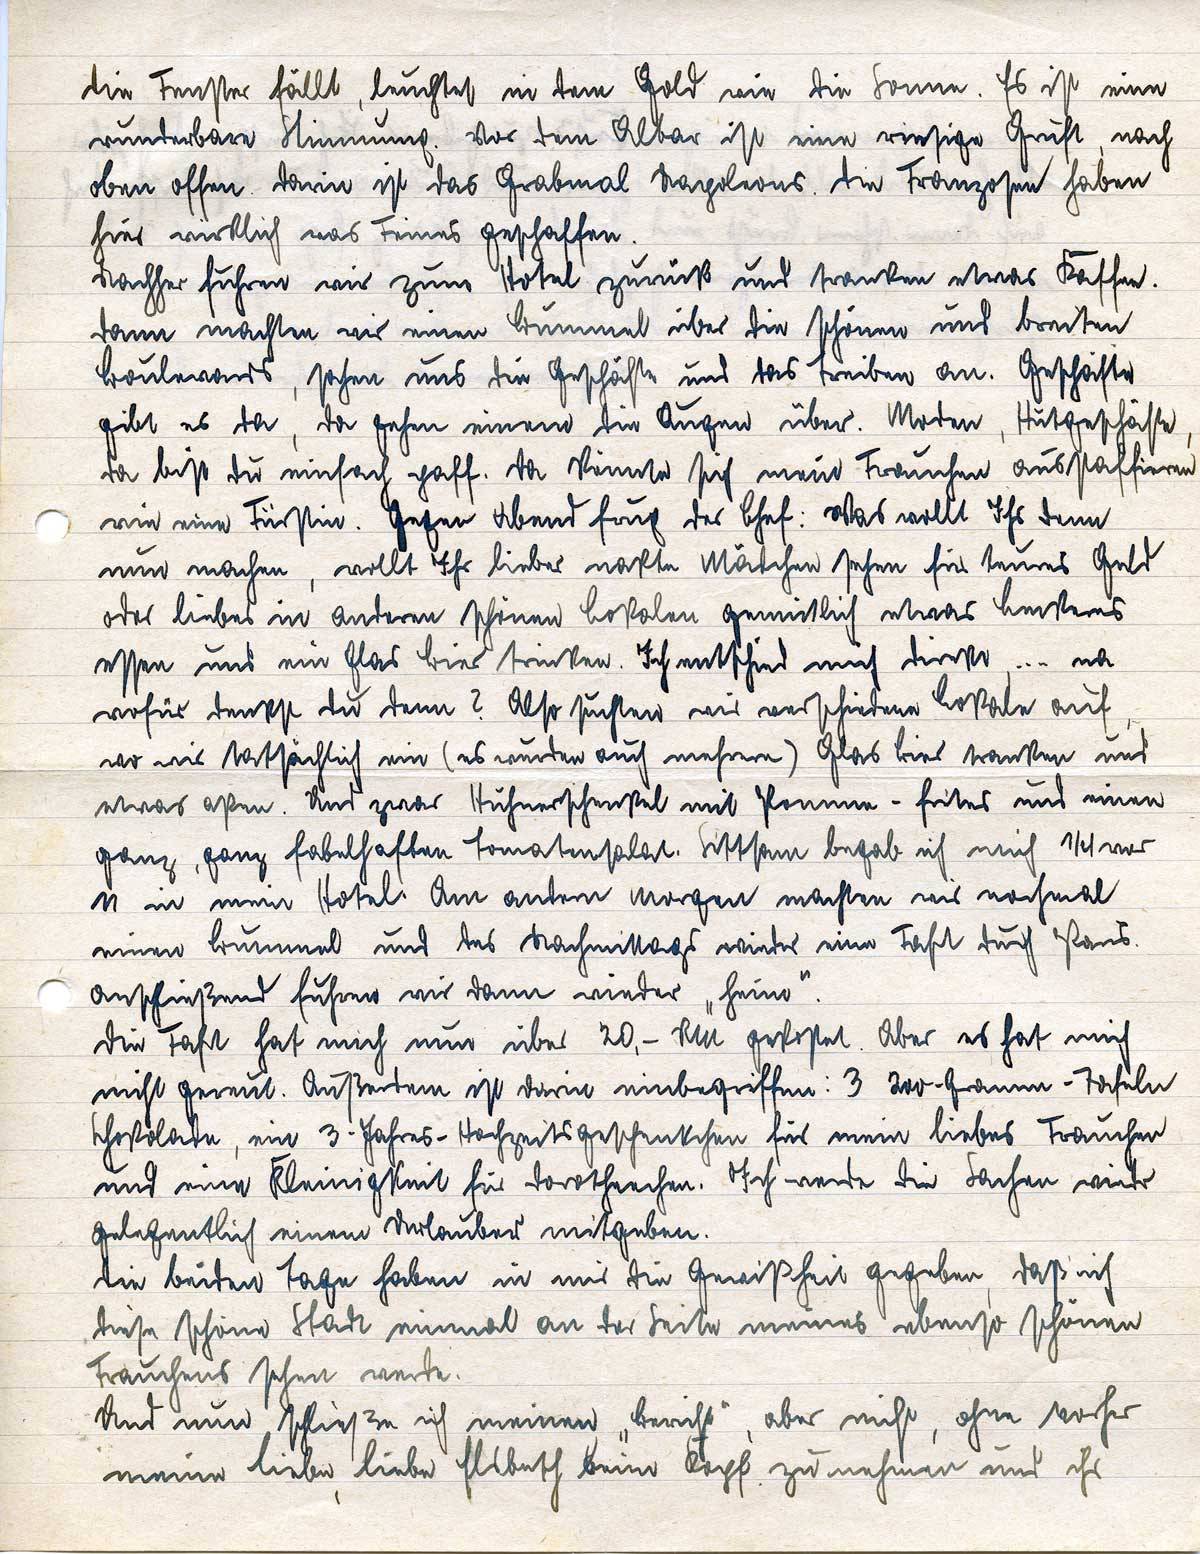 die Fenster fällt, leuchtet in dem Gold wie die Sonne. Es ist eine
wunderbare Stimmung. Vor dem Altar ist eine riesige Gruft, nach
oben offen. Darin ist das Grabmal Napoleons. Die Franzosen haben
hier wirklich was Feines geschaffen.
Nachher fuhren wir zum Hotel zurück und tranken etwas Kaffee.
Dann machten wir einen Bummel über die schönen und breiten
Boulevards, sahen uns die Geschäfte und das Treiben an. Geschäfte
gibt es da, da gehen einem die Augen über. Moden, Hutgeschäfte,
da bist du einfach paff. Da könnte sich mein Frauchen ausstaffieren
wie eine Fürstin. Gegen Abend frug der Chef: Was wollt Ihr denn
nun machen, wollt Ihr lieber nakte Mädchen sehen für teures Geld
oder lieber in anderen schönen Lokalen gemütlich etwas Leckeres
essen und ein Glas Bier trinken. Ich entschied mich direkt ... na
wofür denkst du denn? Also suchten wir verschiedene Lokale auf,
wo wir tatsächlich ein (es wurden auch mehrere) Glas Bier tranken und
etwas aßen. Und zwar Huhnerschenkel mit Pomme-frites und einen
ganz, ganz fabelhaften Tomatensalat. Sittsam begab ich mich 1/4 vor
11 in mein Hotel. Am andern Morgen machten wir nochmal
einen Bummel und des Nachmittags wieder eine Fahrt durch Paris.
Anschließend fuhren wir dann wieder „heim".
Die Fahrt hat mich nun über 20,- RM gekostet. Aber es hat mich
nicht gereut. Außerdem ist darin einbegriffen: 3 200-Gramm-Tafeln
Schokolade, ein 3-Jahres-Hochzeitsgeschenkchen für mein liebes Frauchen
und eine Kleinigkeit für Dorotheechen. Ich werde die Sachen wieder
gelegentlich einem Urlauber mitgeben.
Die beiden Tage haben in mir die Gewißheit gegeben, daß ich
diese schöne Stadt einmal an der Seite meines ebenso schönen
Frauchens sehen werde.
Und nun schließe ich meinen „Bericht", aber nicht, ohne vorher
meine liebe, liebe Elsbeth beim Kopf zu nehmen und ihr